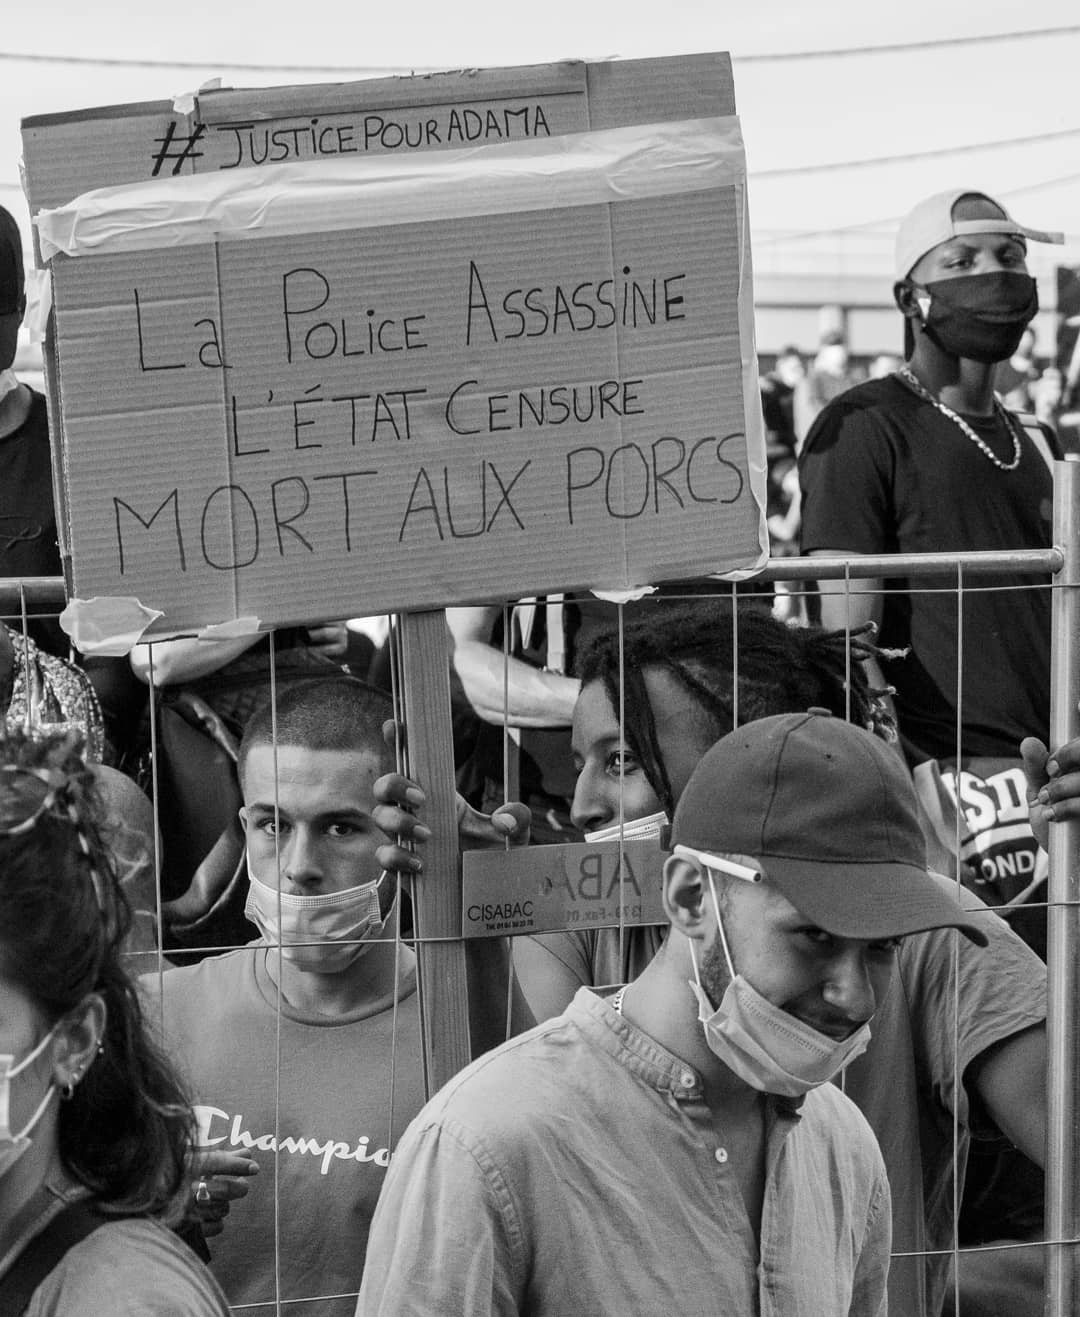 #JUSTICEPOURADAMA
La POLiCE ASSASSiNE
L'ÉTAT CENSURE
MORT AUX PORCS
CISABAC
Champio
LOND